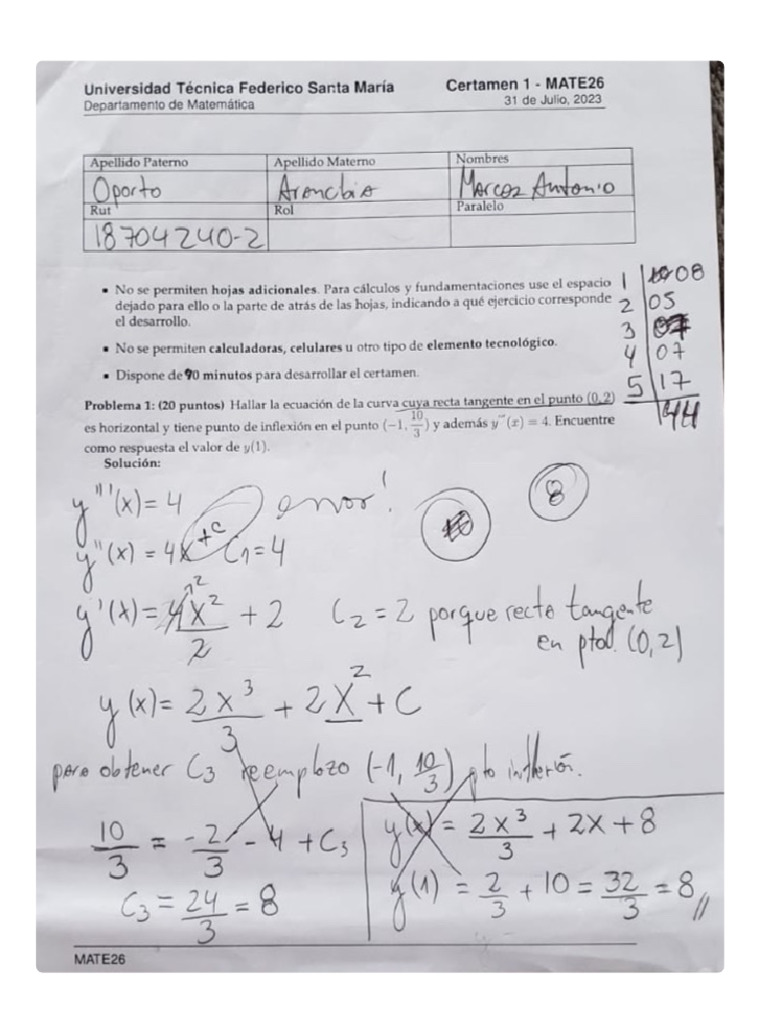 Universidad Técnica Federico Santa María
Departamento de Matemática
Certamen 1 - MATE26
31 de Julio, 2023
Apellido Paterno Apellido Materno Nombres
Oporto Marcos Antonio
Rut Rol Paralelo
18704240-2
▪ No se permiten hojas adicionales. Para cálculos y fundamentaciones use el espacio
dejado para ello o la parte de atrás de las hojas, indicando a qué ejercicio corresponde
el desarrollo.
▪ No se permiten calculadoras, celulares u otro tipo de elemento tecnológico.
▪ Dispone de 90 minutos para desarrollar el certamen.
1 | 08
2 | 05
3 | 07
4 | 07
5 | 17
44
Problema 1: (20 puntos) Hallar la ecuación de la curva cuya recta tangente en el punto (0,2)
es horizontal y tiene punto de inflexión en el punto (-1, 10/3) y además y'''(x) = 4. Encuentre
como respuesta el valor de y(1).
Solución:
y'''(x) = 4 error!
8
y''(x) = 4x +c C₁=4
y'(x) = 4x²/2 + 2 C₂ = 2 porque recta tangente
en pto. (0,2)
y(x) = 2x³/3 + 2x² + C
para obtener C₃ reemplazo (-1, 10/3) pto inflexión.
10/3 = -2/3 - 4 + C₃
C₃ = 24/3 = 8
y(x) = 2x³/3 + 2x + 8
y(1) = 2/3 + 10 = 32/3 = 8 //
MATE26